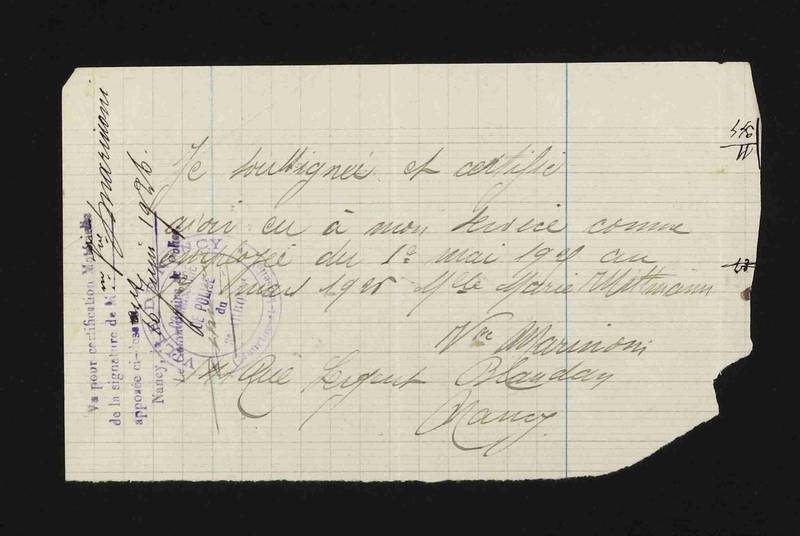 Je soussignée et certifie
avoir eu à mon service comme
employée du 1e mai 19 au
mars 1925 Mlle Marie Mttmann
Vve Marinoni
Rue Sergent Blandan
Nancy
Vu pour certification Matérielle
de la signature de M me Vve Marinoni
apposée ci-dessus
Nancy, le 10 juin 1926.
Le Commissaire de Police
NANCY
DE POLICE
du